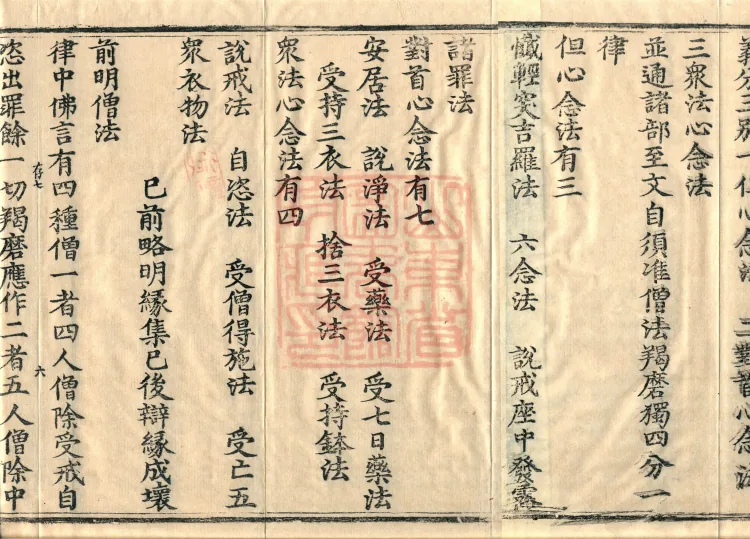 義分二別一但心念法二對首心念法
三衆法心念法
並通諸部至文自須准僧法羯磨獨四分一
律
但心念法有三
懺輕突吉羅法 六念法 說戒座中發露
諸罪法
對首心念法有七
安居法 說淨法 受藥法 受七日藥法
受持三衣法 捨三衣法 受持鉢法
衆法心念法有四
說戒法 自恣法 受僧得施法 受亡五
衆衣物法
已前略明緣集已後辯緣成壞
前明僧法
律中佛言有四種僧一者四人僧除受戒自
存七 六
恣出罪餘一切羯磨應作二者五人僧除中